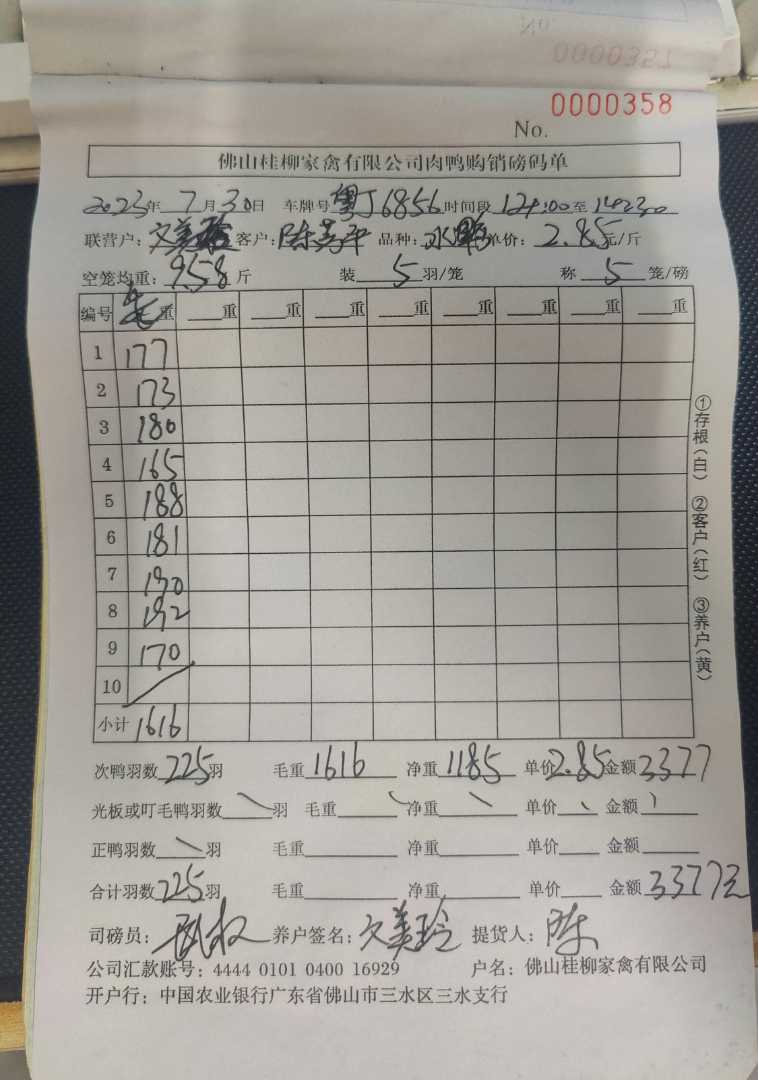 0000351
No.
0000358
佛山桂柳家禽有限公司肉鸭购销磅码单
2023年 7月30日 车牌号粤J6856时间段 12:00至14:30
联营户:文美玲 客户:陈 品种:水鸭 单价:2.85元/斤
空笼均重:9.58斤 装 5 羽/笼 称 5 笼/磅
编号 毛重 重 重 重 重 重 重 重
1 177
2 173
3 180
4 165
5 188
6 181
7 190
8 192
9 170
10
小计 1616
次鸭羽数 225羽 毛重1616 净重1185 单价2.85 金额3377
光板或叮毛鸭羽数 羽 毛重 净重 单价 金额
正鸭羽数 羽 毛重 净重 单价 金额
合计羽数225羽 毛重 净重 单价 金额3377元
司磅员: 养户签名:文美玲 提货人:陈
公司汇款账号:4444 0101 0400 16929 户名:佛山桂柳家禽有限公司
开户行:中国农业银行广东省佛山市三水区三水支行
①存根(白) ②客户(红) ③养户(黄)